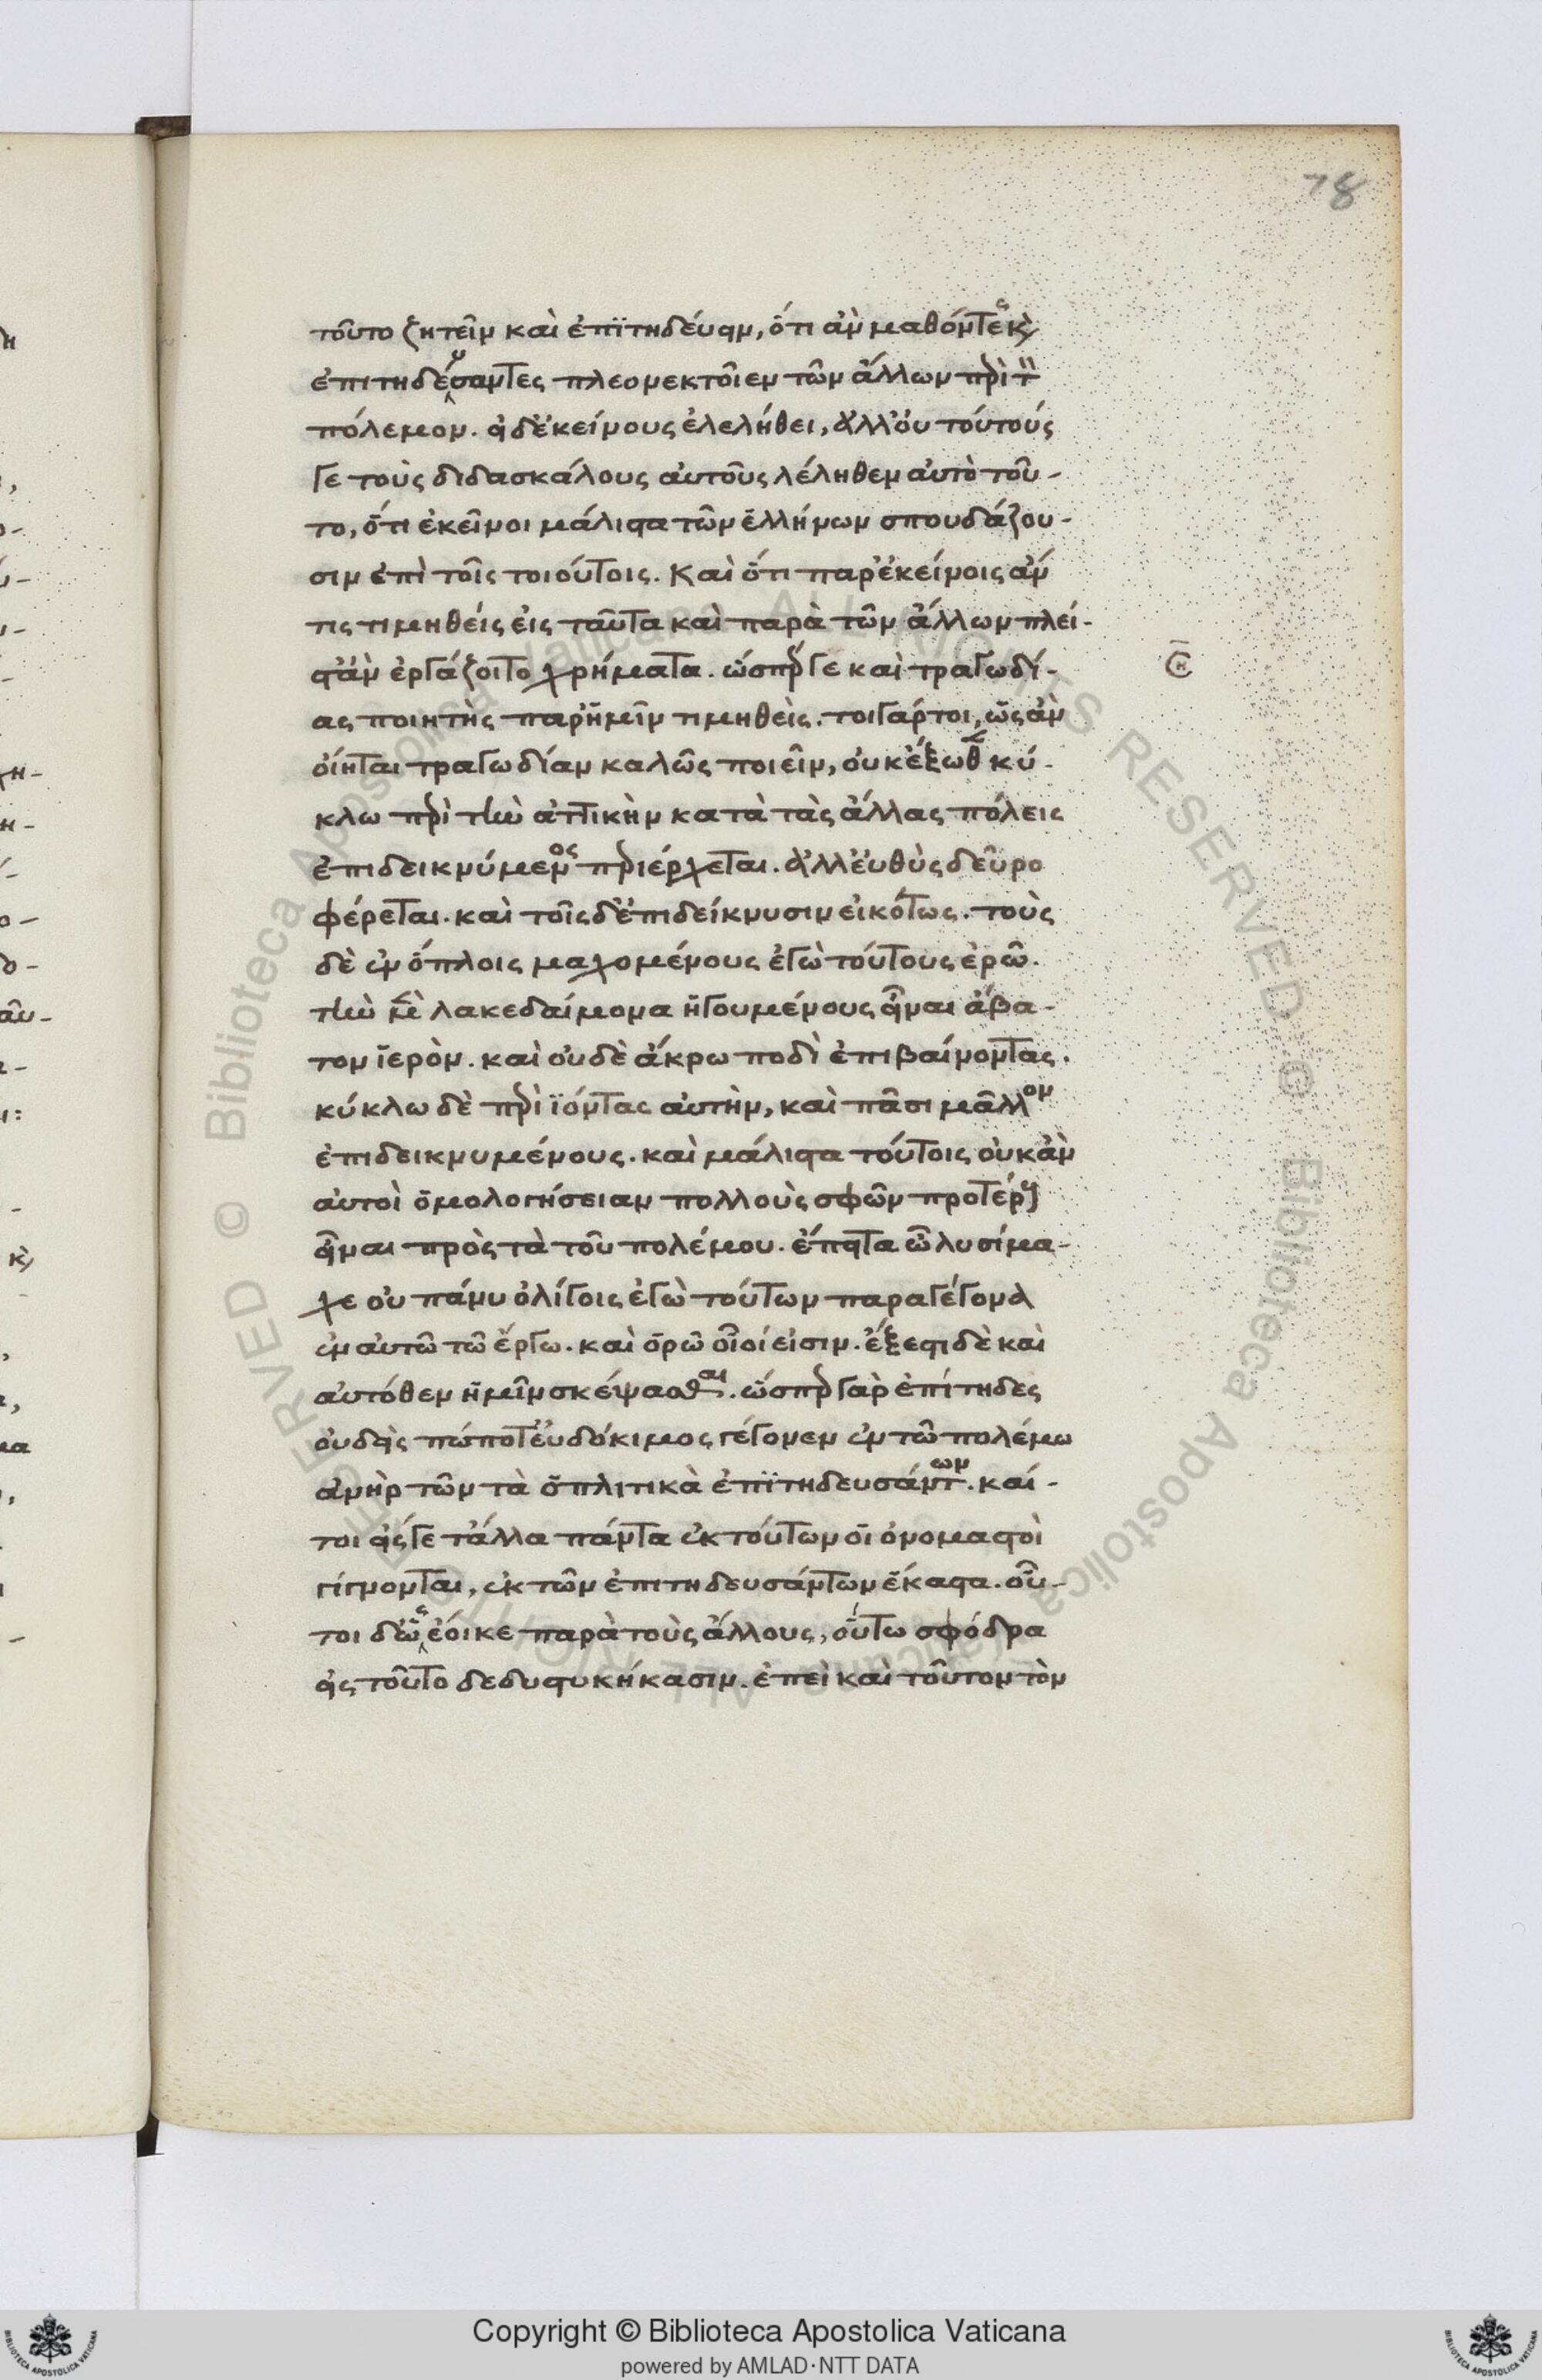 78
τοῦτο ζητεῖν καὶ ἐπϊτηδεύειν, ὅτι ἂν μαθόντες κ(αὶ)
ἐπιτηδεύσαντες πλεονεκτοῖεν τῶν ἄλλων π(ε)ρὶ τ(ὸν)
πόλεμον. εἰ δ' ἐκείνους ἐλελήθει, ἀλλ' οὐ τούτούς
γε τοὺς διδασκάλους αὐτοῦς λέληθεν αὐτὸ τοῦ-
το, ὅτι ἐκεῖνοι μάλιστα τῶν ἑλλήνων σπουδάζου-
σιν ἐπὶ τοῖς τοιούτοις. Καὶ ὅτι παρ' ἐκείνοις ἄν
τις τιμηθείς εἰς ταῦτα καὶ παρὰ τῶν ἄλλων πλεί-
στ' ἂν ἐργάζοιτο χρήματα. ὥσπ(ε)ρ γε καὶ τραγωδί-
ας ποιητὴς παρ' ἡμῖν τιμηθεὶς. τοιγάρτοι, ὃς ἂν
οἴηται τραγωδίαν καλῶς ποιεῖν, οὐκ ἔξωθ(εν) κύ-
κλω π(ε)ρὶ τὴν ἀττικὴν κατὰ τὰς ἄλλας πόλεις
ἐπιδεικνύμενος π(ε)ριέρχεται. ἀλλ' εὐθὺς δεῦρο
φέρεται. καὶ τοῖς δ' ἐπιδείκνυσιν εἰκότως. τοὺς
δὲ ἐν ὅπλοις μαχομένους ἐγὼ τούτους ἐρῶ.
τὴν μ(ὲν) λακεδαίμονα ἡγουμένους εἶναι ἄβα-
τον ἱερὸν. καὶ οὐδὲ ἄκρω ποδὶ ἐπιβαίνοντας.
κύκλω δὲ π(ε)ρὶ ϊόντας αὐτὴν, καὶ πᾶσι μᾶλλον
ἐπιδεικνυμένους. καὶ μάλιστα τούτοις οὐκ ἂν
αὐτοὶ ὁμολογήσειαν πολλοὺς σφῶν προτέρους
εἶναι πρὸς τὰ τοῦ πολέμου. ἔπειτα ὦ λυσίμα-
χε οὐ πάνυ ὀλίγοις ἐγὼ τούτων παραγέγονα
ἐν αὐτῶ τῶ ἔργω. καὶ ὁρῶ οἷοί εἰσιν. ἔξεστι δὲ καὶ
αὐτόθεν ἡμῖν σκέψασθαι. ὥσπ(ε)ρ γαρ ἐπίτηδες
οὐδεὶς πώποτ' εὐδόκιμος γέγονεν ἐν τῶ πολέμω
ἀνὴρ τῶν τὰ ὁπλιτικὰ ἐπϊτηδευσάντων. καί-
τοι εἴς γε τἄλλα πάντα ἐκ τούτων οἱ ὀνομαστοὶ
γίγνονται, ἐκ τῶν ἐπιτηδευσάντων ἕκαστα. οὗ-
τοι δ' ὡς ἔοικε παρὰ τοὺς ἄλλους, οὕτω σφόδρα
εἰς τοῦτο δεδυστυκήκασιν. ἐπεὶ καὶ τοῦτον τὸν
Copyright © Biblioteca Apostolica Vaticana
powered by AMLAD·NTT DATA